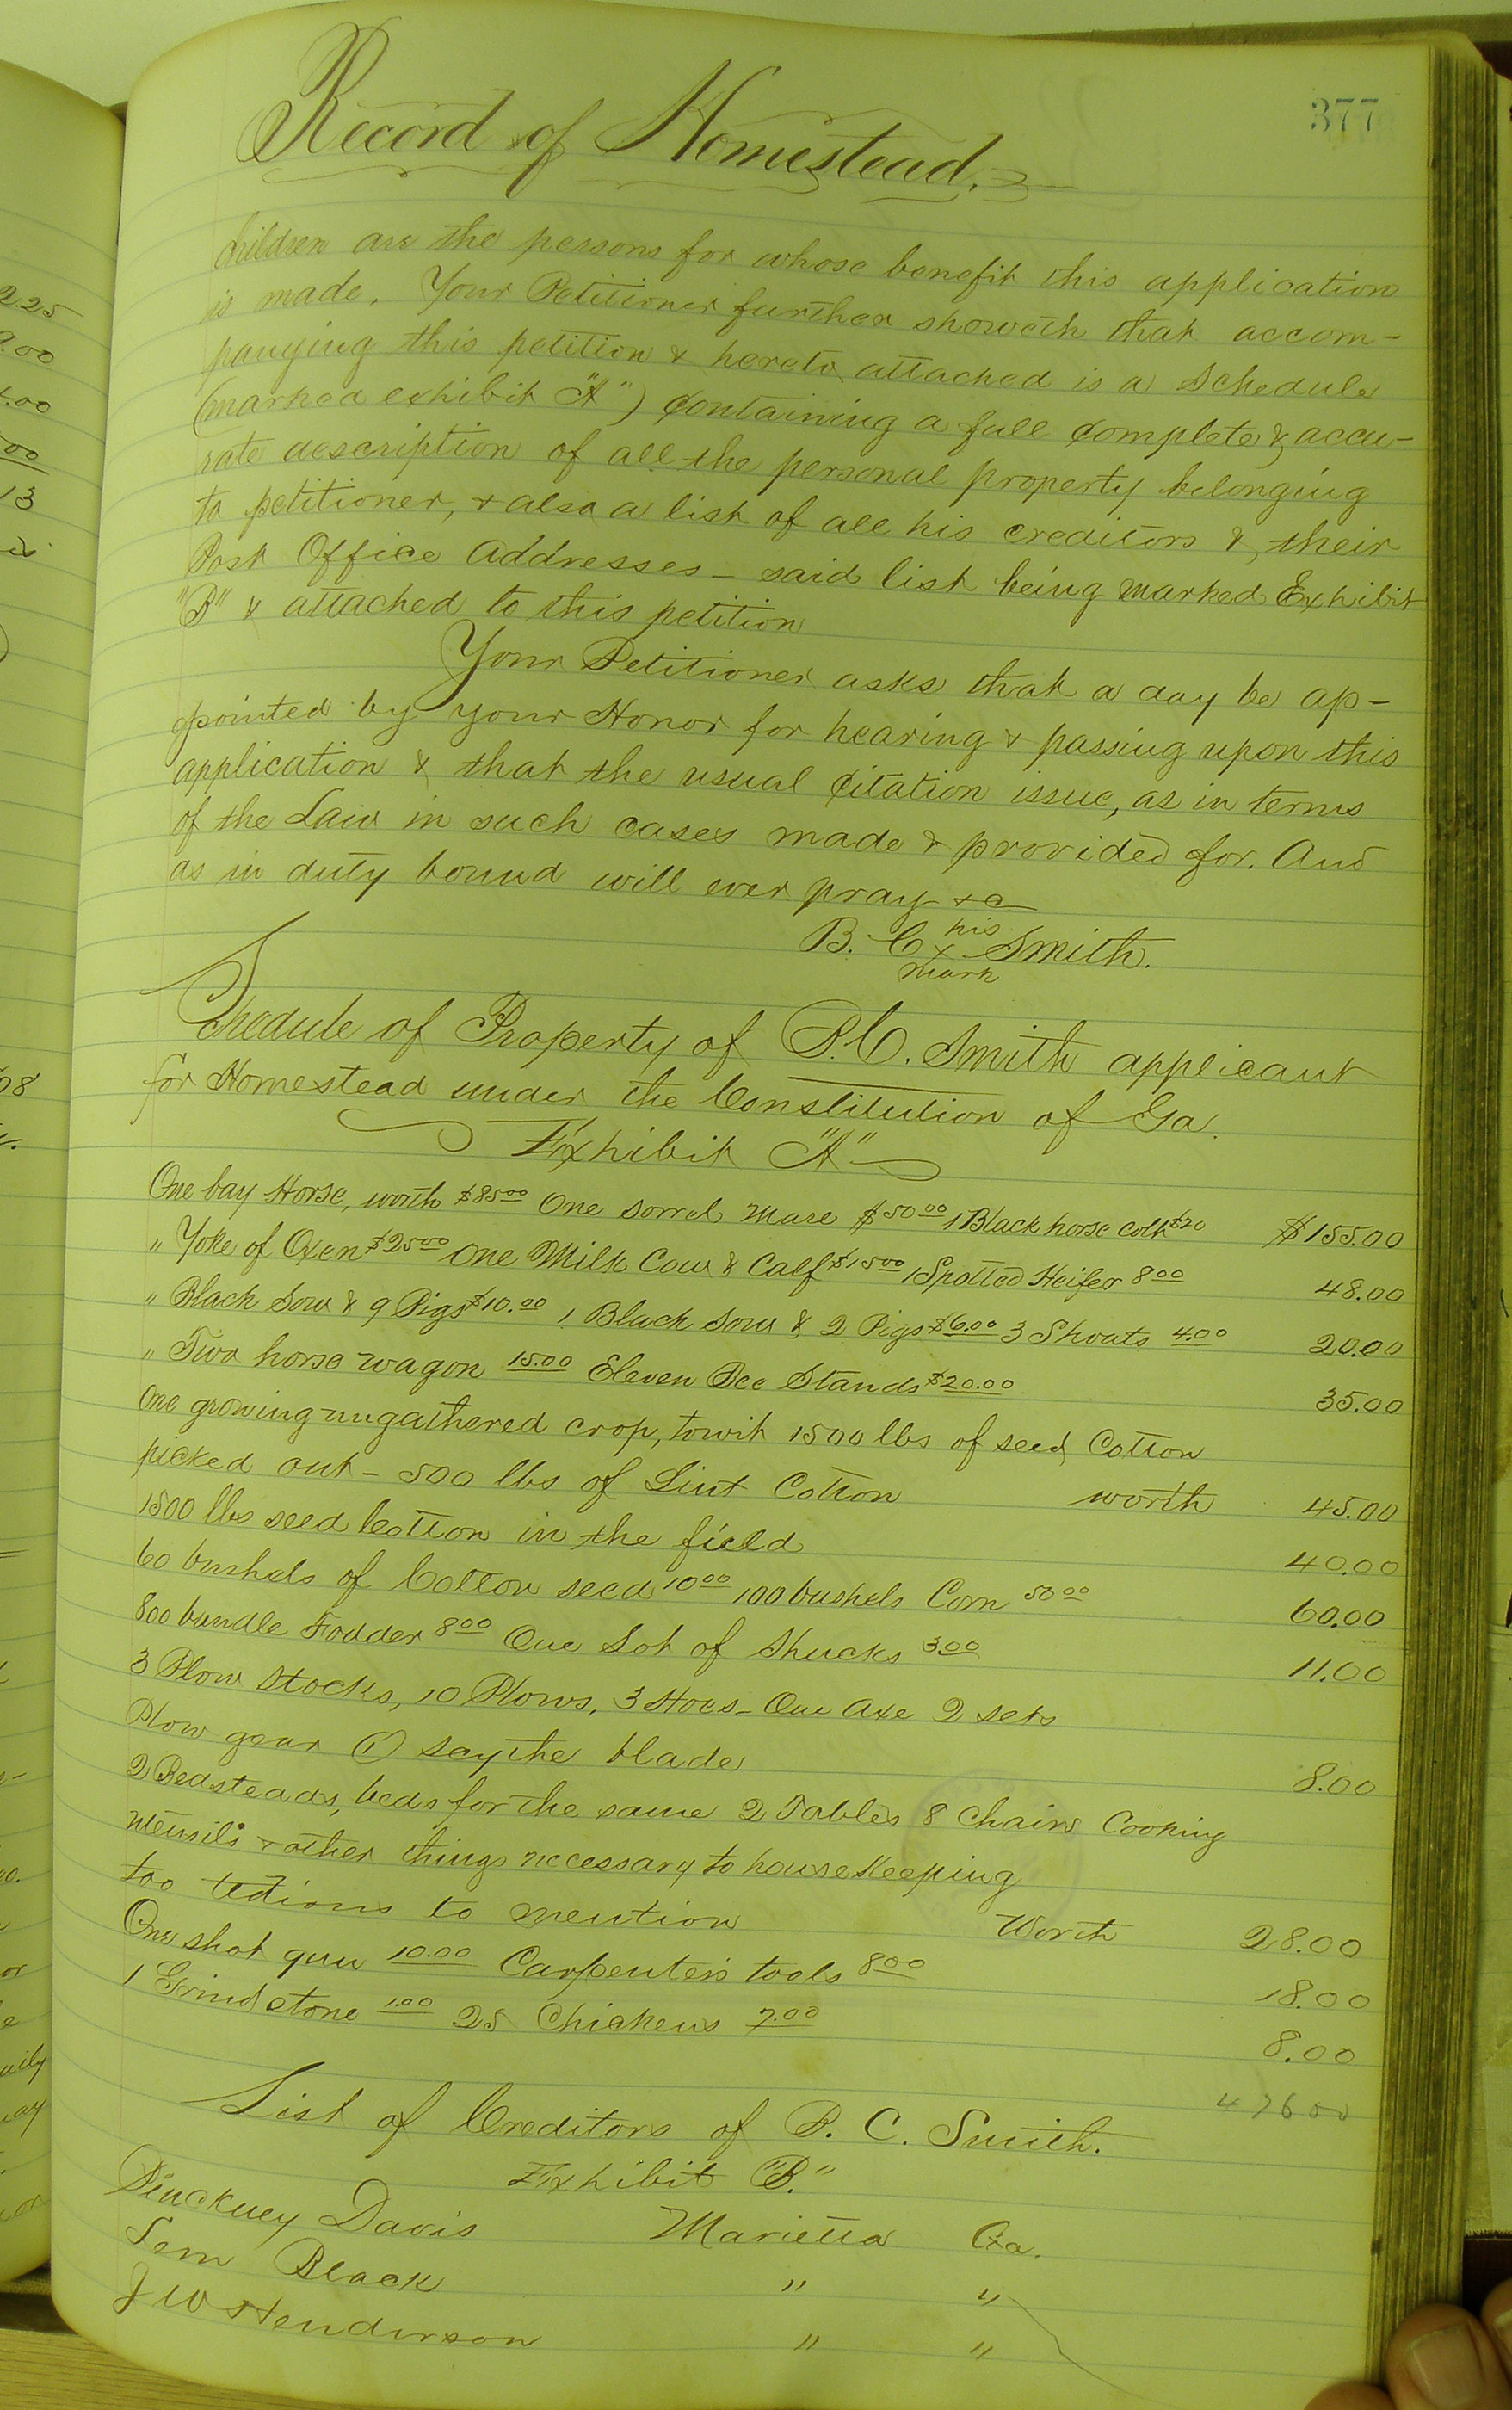 377
Record of Homestead.
children are the persons for whose benefit this application
is made. Your Petitioner further showeth that accom-
panying this petition & hereto attached is a Schedule
(marked exhibit "A") containing a full complete & accu-
rate description of all the personal property belonging
to petitioner, & also a list of all his creditors & their
Post Office Addresses - said list being marked Exhibit
"B" & attached to this petition
Your Petitioner asks that a day be ap-
pointed by your Honor for hearing & passing upon this
application & that the usual citation issue, as in terms
of the Law in such cases made & provided for. And
as in duty bound will ever pray &c
B. C. his x mark Smith.
Schedule of Property of B. C. Smith applicant
for Homestead under the Constitution of Ga.
Exhibit "A"
One bay Horse, worth $85.00 One sorrel Mare $50.00 1 Black horse colt $20 $155.00
" Yoke of Oxen $25.00 One Milk Cow & Calf $15.00 1 Spotted Heifer 8.00 48.00
" Black Sow & 9 Pigs $10.00 1 Black Sow & 2 Pigs $6.00 3 Shoats 4.00 20.00
" Two horse wagon 15.00 Eleven Bee Stands $20.00 35.00
One growing ungathered crop, towit 1500 lbs of seed Cotton
picked out - 500 lbs of Lint Cotton worth 45.00
1500 lbs seed Cotton in the field 40.00
60 bushels of Cotton seed 10.00 100 bushels Corn 50.00 60.00
800 bundle Fodder 8.00 One Lot of Shucks 3.00 11.00
3 Plow Stocks, 10 Plows, 3 Hoes - One Axe 2 sets
Plow gear (1) scythe blade 8.00
2 Bedsteads, beds for the same 2 Tables 8 Chairs Cooking
utensils & other things necessary to house Keeping
too tedious to mention Worth 28.00
One shot gun 10.00 Carpenter's tools 8.00 18.00
1 Grind stone 1.00 25 Chickens 7.00 8.00
476 00
List of Creditors of B. C. Smith.
Exhibit "B."
Pinckney Davis Marietta Ga.
Lem Black " "
J W Henderson " "